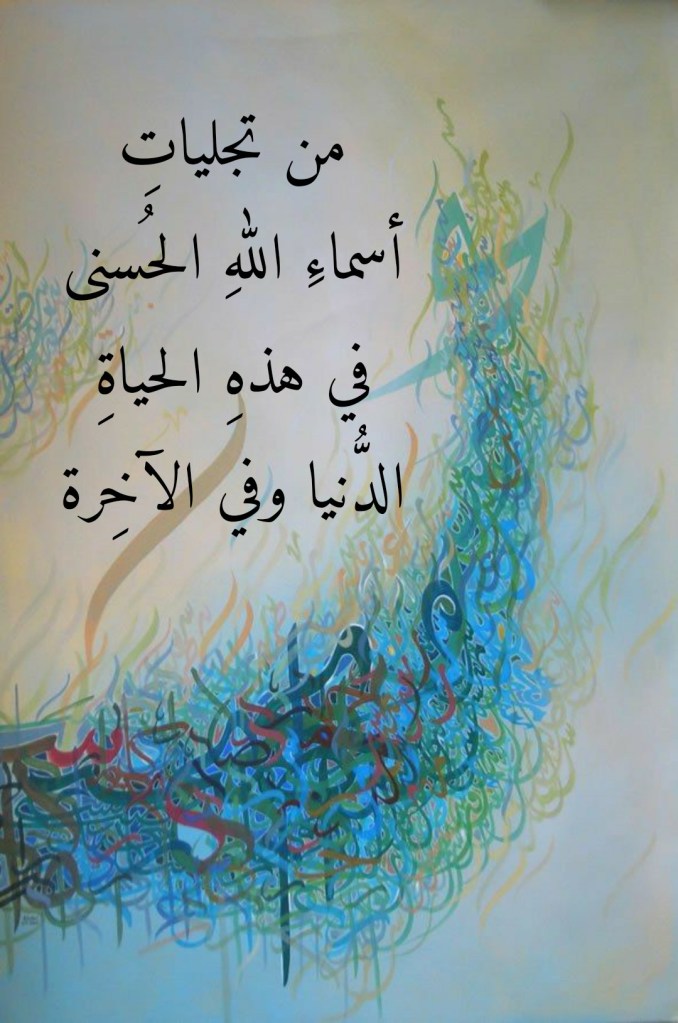 من تجلياتِ
أسماءِ اللهِ الحُسنى
في هذهِ الحياةِ
الدُّنيا وفي الآخِرة